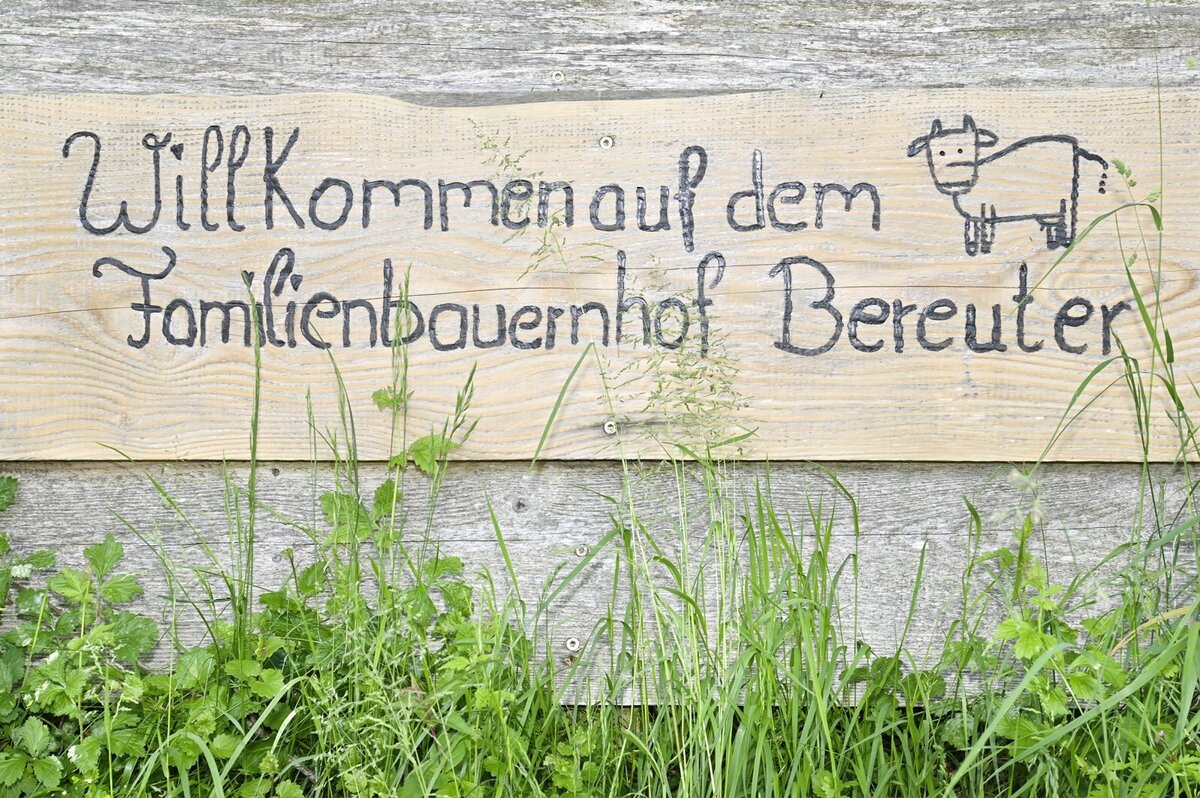 Willkommen auf dem
Familienbauernhof Bereuter